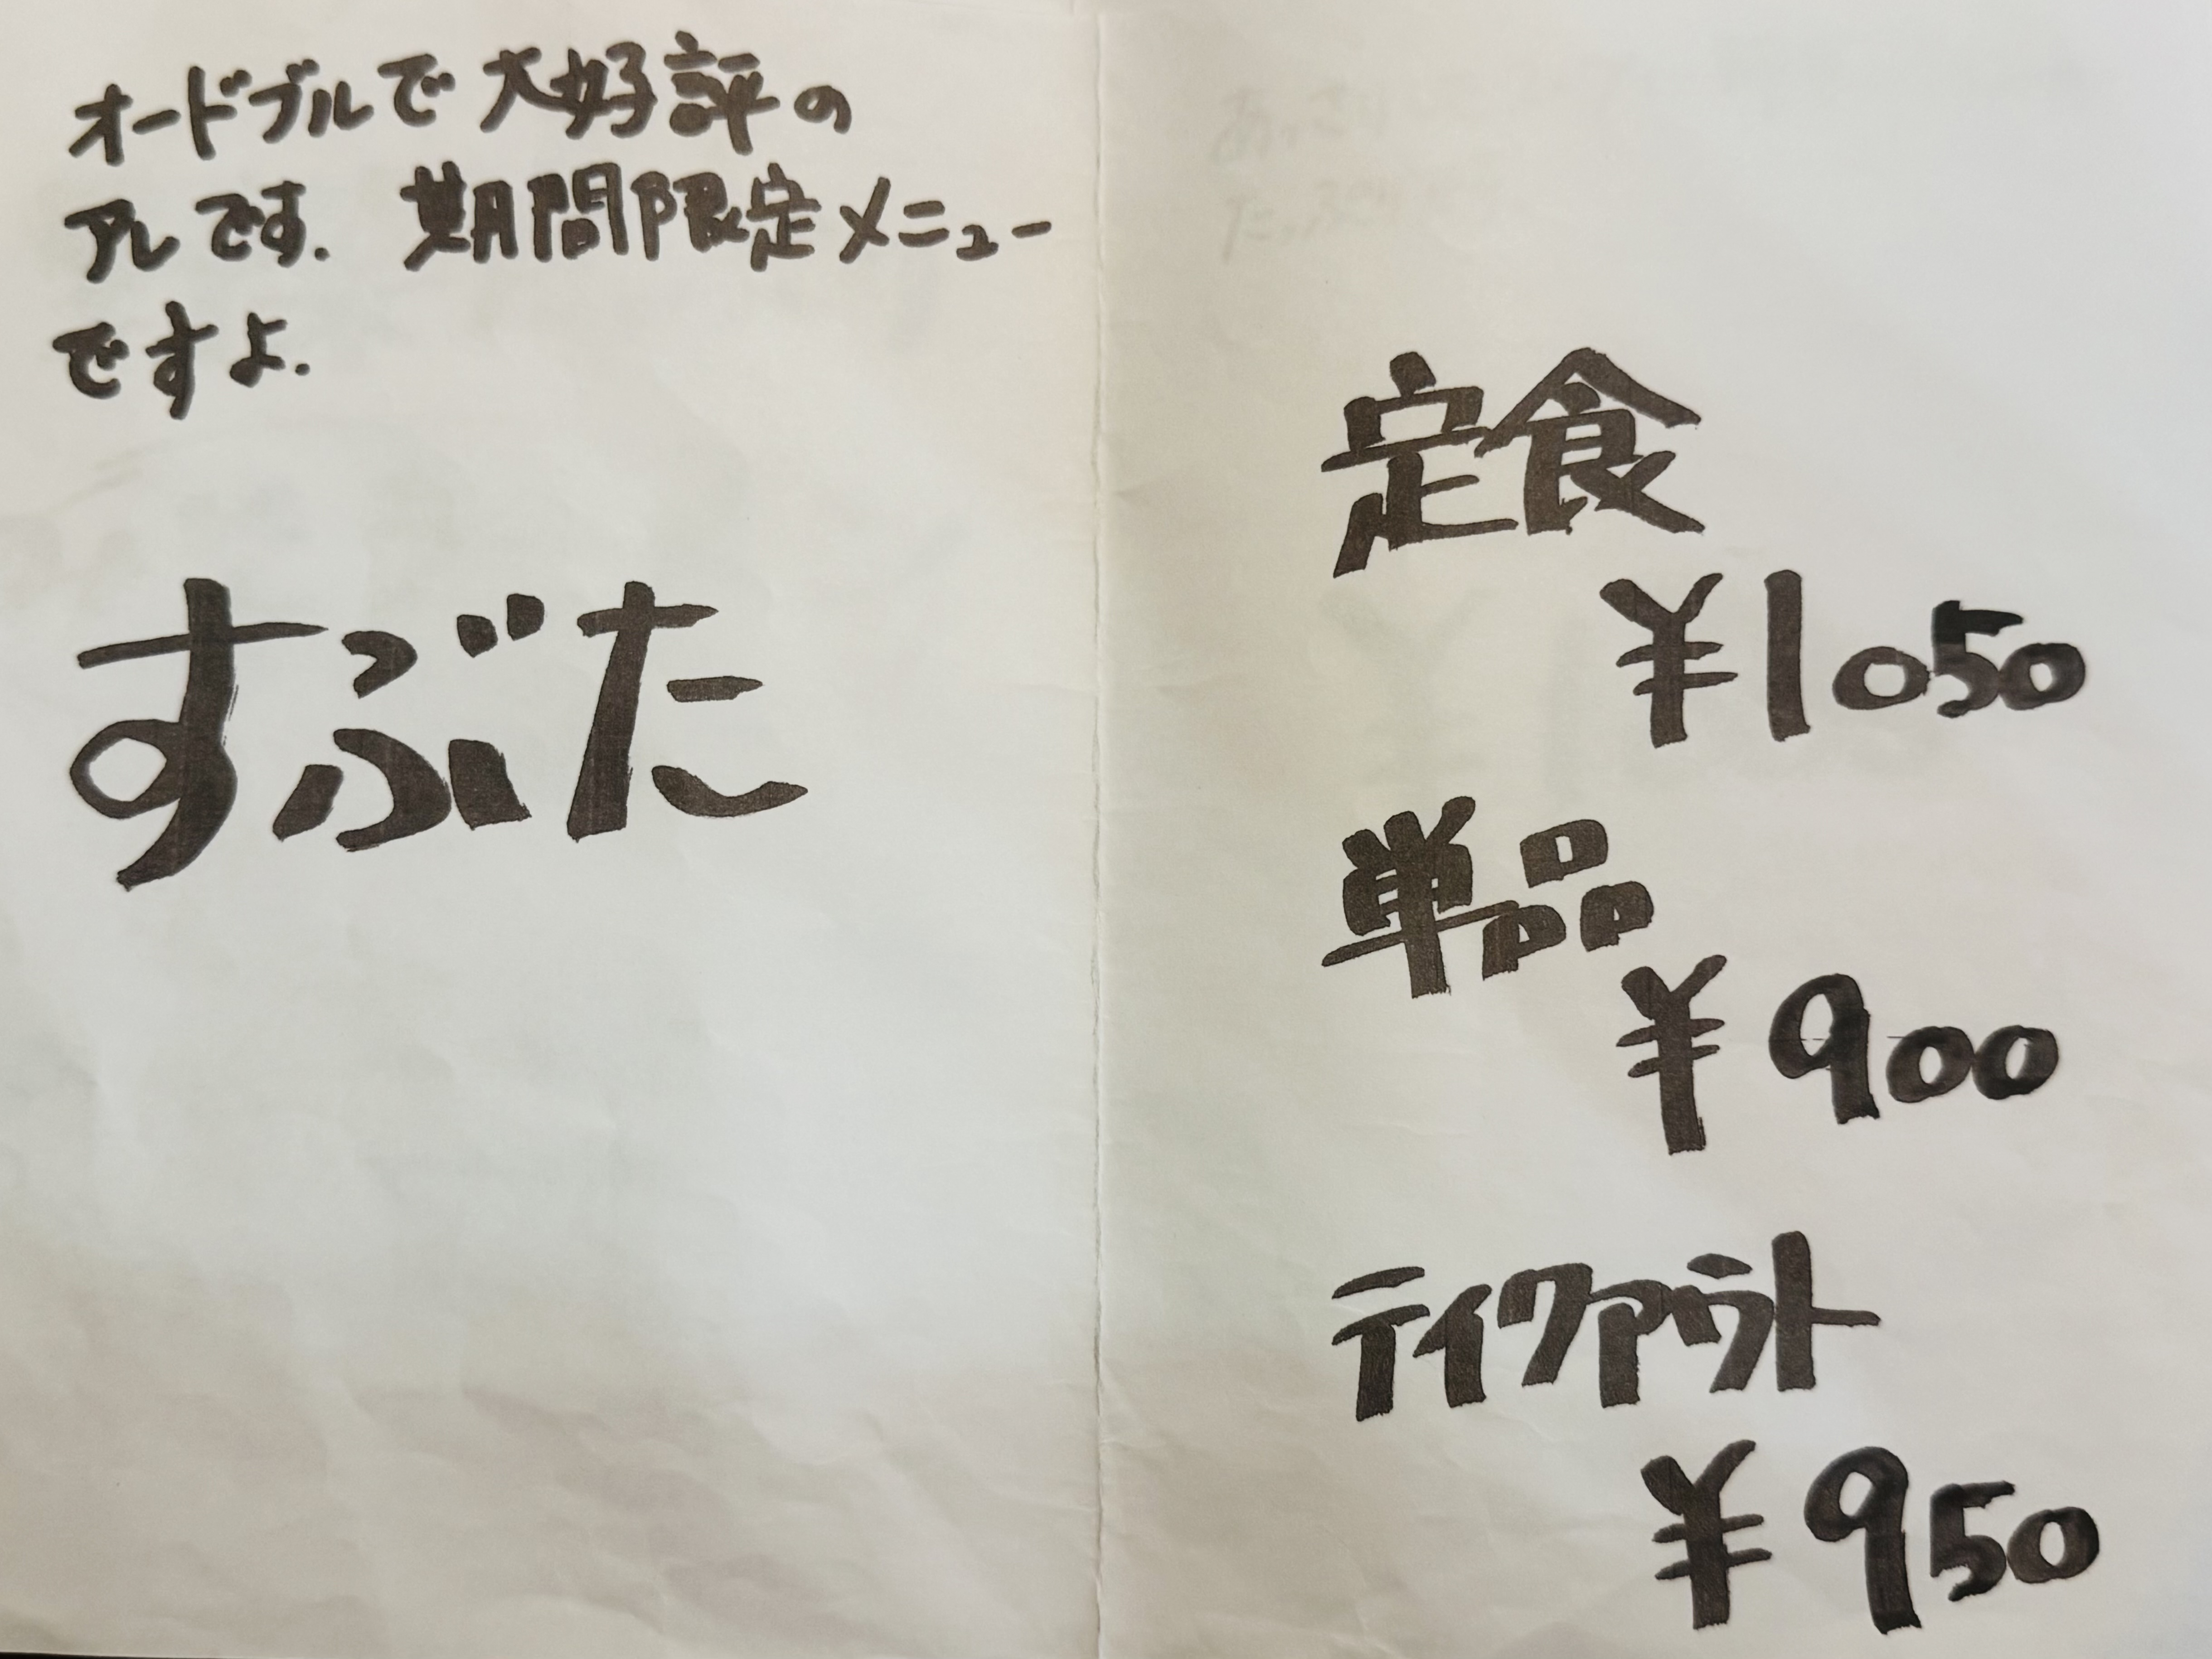 オードブルで大好評の
アレです. 期間限定メニュー
ですよ.
すぶた
定食
¥1050
単品
¥900
テイクアウト
¥950